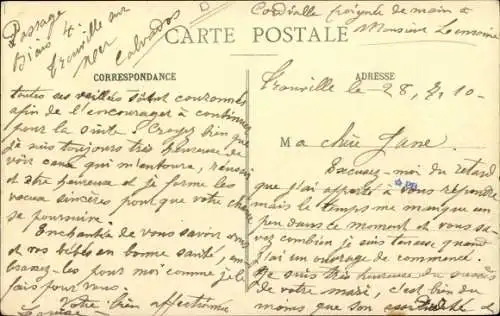 Passage
Biais 4.
Trouville sur
mer
Calvados
Cordialle poignée de main à
Monsieur
CARTE POSTALE
CORRESPONDANCE
ADRESSE
Trouville le 28, 10-
Ma chère Jane.
Excusez-moi du retard
que j'ai apporté à vous répondre
mais le temps me manque un
peu dans ce moment et vous sa-
vez combien je suis tenace quand
j'ai un ouvrage de commencé.
Je suis très heureuse du succès
de votre mari, c'est bien du
moins que son et
toutes ses veillées soient couronnées
afin de l'encourager à continuer
pour la suite. Croyez bien que
je suis toujours très heureuse de
voir ceux qui m'entoure, réussir
et être heureux et je forme les
vœux sincères pour que votre chance
se poursuive.
Enchantée de vous savoir vous
et vos bébés en bonne santé, em-
brassez-les pour moi comme je le
fais pour vous.
Votre bien affectionnée